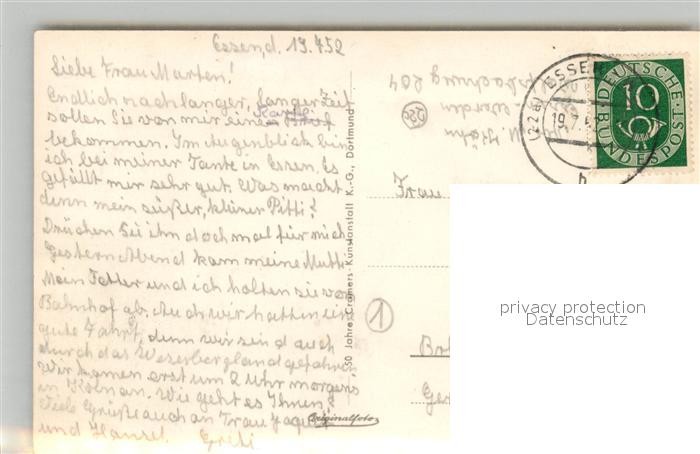 Essen, d. 19.7.52
Liebe Frau Marten!
Endlich nach langer, langer Zeit
sollen Sie von mir eine Karte
bekommen. Im Augenblick bin
ich bei meiner Tante in Essen. Es
gefällt mir sehr gut. Was macht
denn mein süßer, kleiner Pitti?
Drücken Sie ihn doch mal für mich
Gestern Abend kam meine Mutti
Mein Vetter und ich holten sie vom
Bahnhof ab. Auch wir hatten eine
gute Fahrt, denn wir sind auch
durch das Weserbergland gefahren
Wir kamen erst um 2 Uhr morgens
in Köln an. Wie geht es Ihnen?
Viele Grüße auch an Frau
und Hansel.
50 Jahre Cramers Kunstanstalt K.-G., Dortmund
Originalfoto
-Werden
22a
(22a) ESSEN
19.7.
h
DEUTSCHE
10
BUNDESPOST
Frau
1
privacy protection
Datenschutz